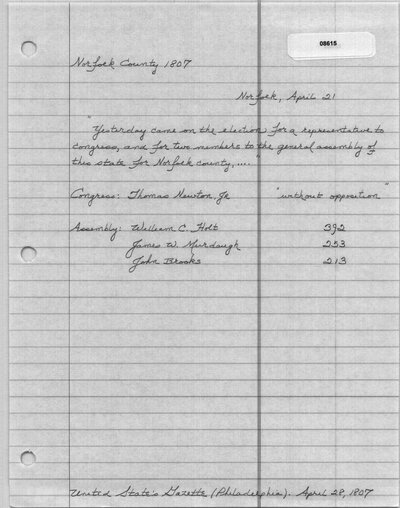 08615
Norfolk County 1807
Norfolk, April 21
"Yesterday came on the election for a representative to
congress, and for two members to the general assembly of
this state for Norfolk county, ...."
Congress: Thomas Newton, Jr "without opposition"
Assembly: William C. Holt 392
James W. Murdaugh 253
John Brooks 213
United State's Gazette (Philadelphia). April 28, 1807